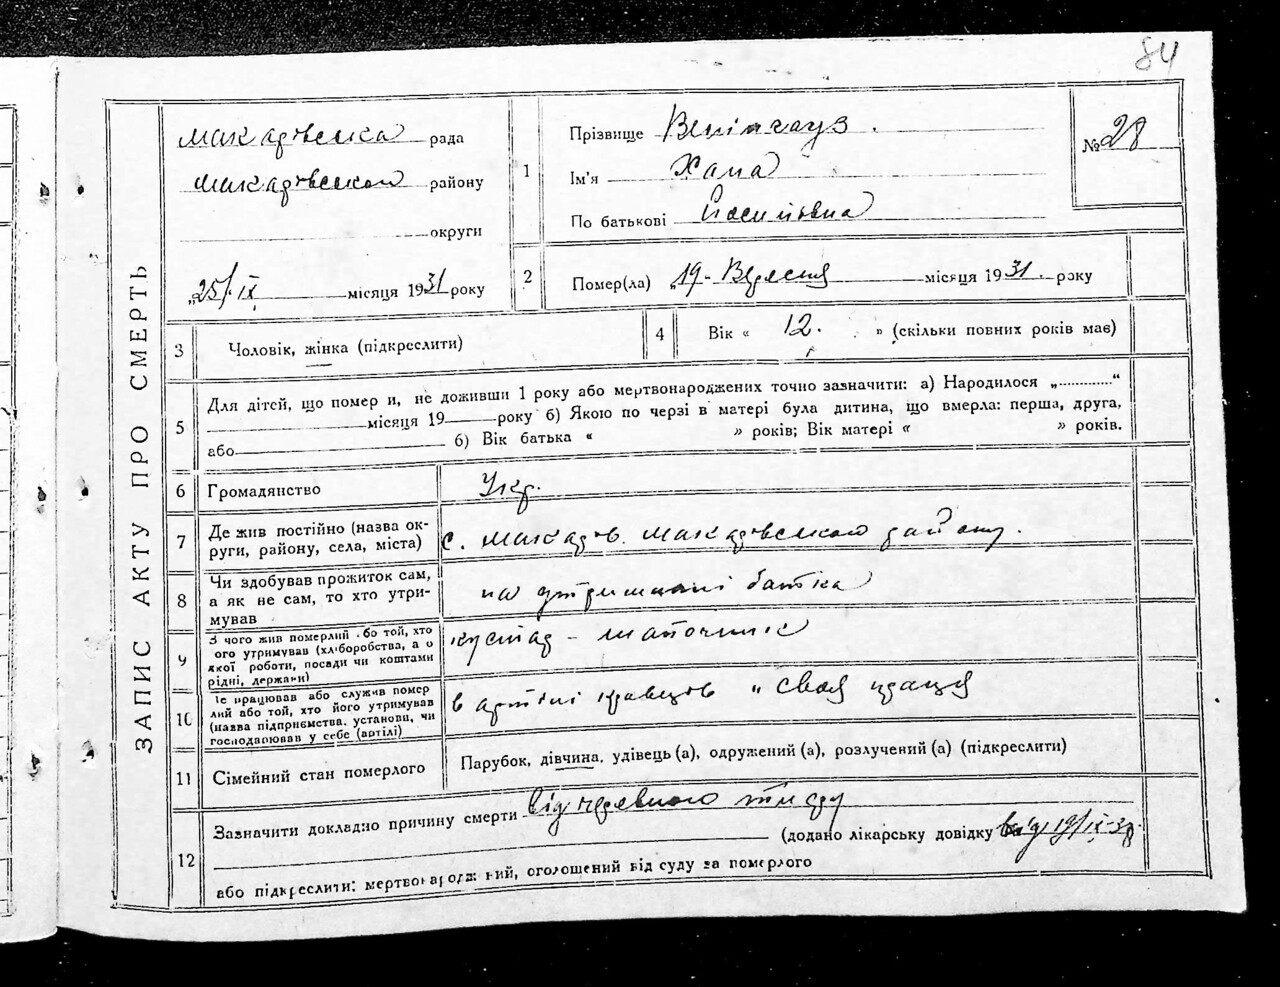 84
ЗАПИС АКТУ ПРО СМЕРТЬ
Макарівська рада
Макарівського району
округи
„25/IX місяця 1931 року
1
Прізвище
Ім'я Хана
По батькові Йосипівна
№ 28
2
Помер(ла) „19- Вересня місяця 1931. року
3
Чоловік, жінка (підкреслити)
4
Вік « 12. » (скільки повних років має)
5
Для дітей, що помер и, не доживши 1 року або мертвонароджених точно зазначити: а) Народилося „ “
місяця 19 року б) Якою по черзі в матері була дитина, що вмерла: перша, друга,
або б) Вік батька « » років; Вік матері « » років.
6
Громадянство Укр.
7
Де жив постійно (назва ок-
руги, району, села, міста)
с. Макарів. Макарівського району.
8
Чи здобував прожиток сам,
а як не сам, то хто утри-
мував
на утриманні батька
9
З чого жив померлий або той, хто
ого утримував (хліборобства, а о
якої роботи, посади чи коштами
рідні, держави)
кустар - шапочник
10
Де працював або служив помер
лий або той, хто його утримував
(назва підприємства, установи, чи
господарював у себе (артілі)
в артілі кравців „ Своя праця
11
Сімейний стан померлого
Парубок, дівчина, удівець (а), одружений (а), розлучений (а) (підкреслити)
12
Зазначити докладно причину смерти від черевного тифу
(додано лікарську довідку від 19/IX-31
або підкреслити: мертвонароджений, оголошений від суду за померлого